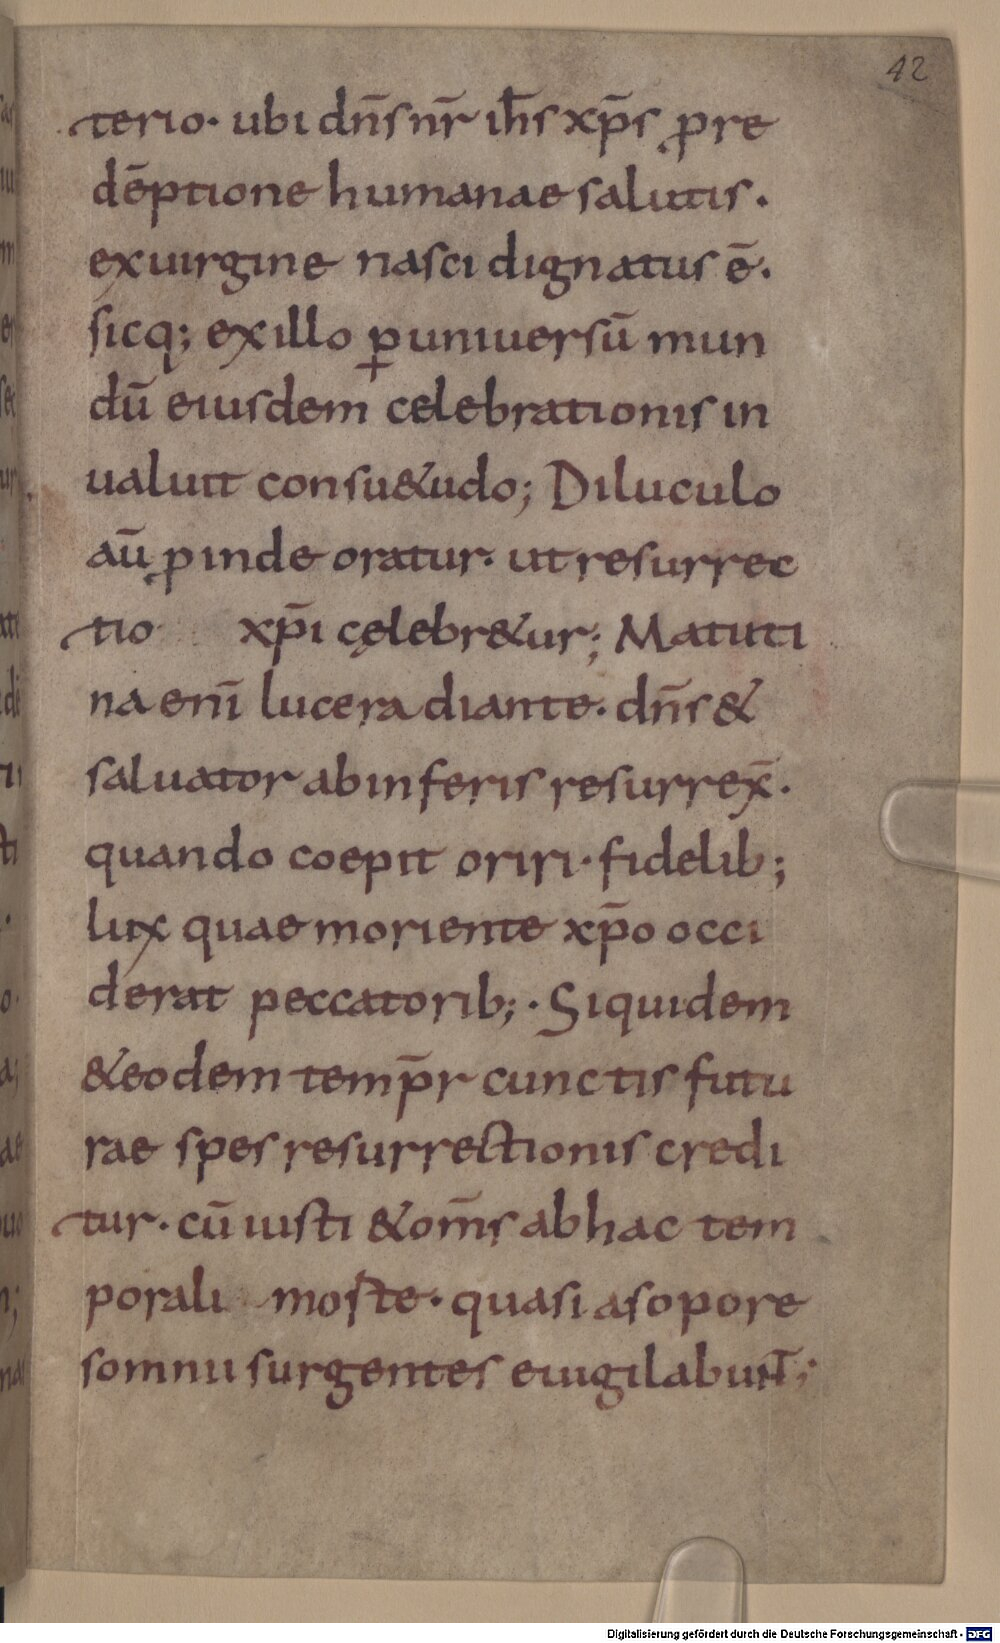 42
terio· ubi dn̄s nr̄ ih̄s xp̄s ꝓ re
dēptione humanae salutis·
ex uirgine nasci dignatus ē·
sicq; ex illo ꝑ uniuersū mun
dū eiusdem celebrationis in
ualuit consu&udo; Diluculo
aū ꝓinde oratur· ut resurrec
tio xp̄i cęlebr&ur; Matuti
na enī luce radiante· dn̄s &
saluator ab inferis resurrex̄·
quando coepit oriri· fidelib;
lux quae moriente xp̄o occi
derat peccatorib;· Siquidem
&eodem temp̄r cunctis futu
rae spes resurrectionis credi
tur· cū iusti & om̄s ab hac tem
porali morte· quasi a sopore
somni surgentes euigilabunt;
Digitalisierung gefördert durch die Deutsche Forschungsgemeinschaft - DFG